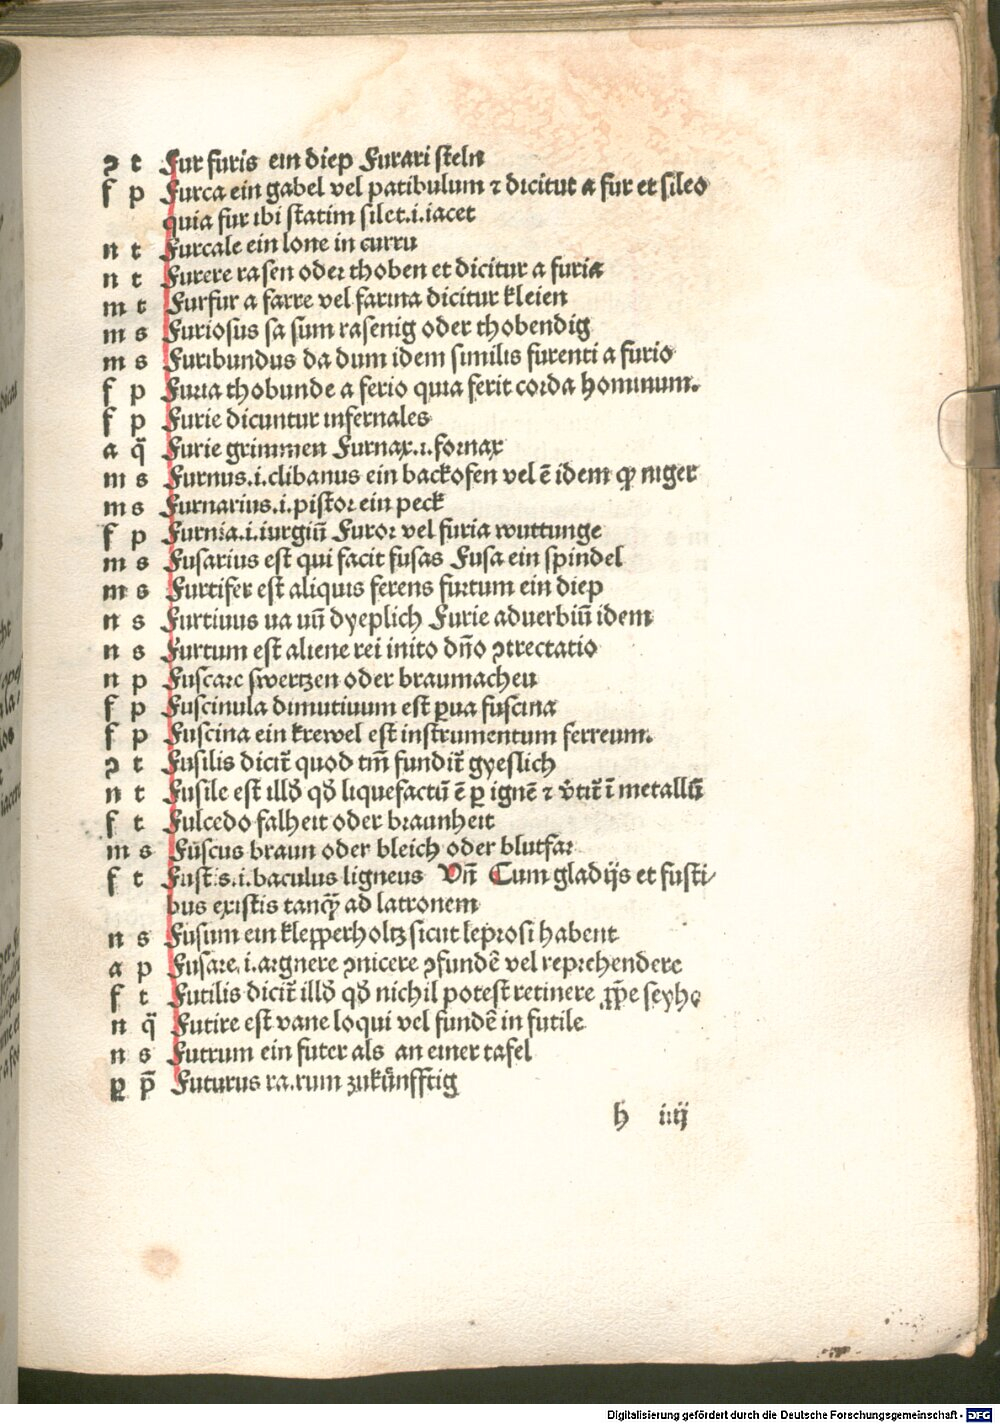 ꝯ t Fur furis ein diep Furari steln
f p Furca ein gabel vel patibulum ⁊ dicitur a fur et sileo
quia fur ibi statim silet .i. iacet
n t Furcale ein lone in curru
n t Furere rasen oder thoben et dicitur a furia
m t Furfur a farre vel farina dicitur kleien
m s Furiosus sa sum rasenig oder thobendig
m s Furibundus da dum idem similis furenti a furio
f p Furia thobunde a ferio quia ferit corda hominum.
f p Furie dicuntur infernales
a q̈ Furie grimmen Furnax .i. fornax
m s Furnus .i. clibanus ein backofen vel ē idem ꝙ niger
m s Furnarius .i. pistor ein peck
f p Furnia .i. iurgiū Furor vel furia wuttunge
m s Fusarius est qui facit fusas Fusa ein spindel
m s Furtifer est aliquis ferens furtum ein diep
n s Furtiuus ua uū dyeplich Furie aduerbiū idem
n s Furtum est aliene rei inito dn̄o ꝯtrectatio
n p Fuscare swertzen oder braumacheu
f p Fuscinula dimutiuum est ꝑua fuscina
f p Fuscina ein krewel est instrumentum ferreum.
ꝯ t Fusilis dicit̄ quod tm̄ fundit̄ gyeslich
n t Fusile est illd̄ qd̄ liquefactū ē ꝑ ignē ⁊ v̄tit̄ ī metallū
f t Fulcedo falheit oder braunheit
m s Fuscus braun oder bleich oder blutfar
f t Fustis .i. baculus ligneus Vn̄ Cum gladijs et fusti/
bus existis tanqȝ ad latronem
n s Fusum ein klepperholtz sicut leprosi habent
a p Fusare .i. argnere ꝯnicere ꝯfundē vel reprehendere
f t Futilis dicit̄ illd̄ qd̄ nichil potest retinere ꝓp̄e seyhe
n q̈ Futire est vane loqui vel fundē in futile
n s Futrum ein futer als an einer tafel
ꝑ p̄ Futurus ra .rum zukünfftig
h iiij
Digitalisierung gefördert durch die Deutsche Forschungsgemeinschaft - DFG